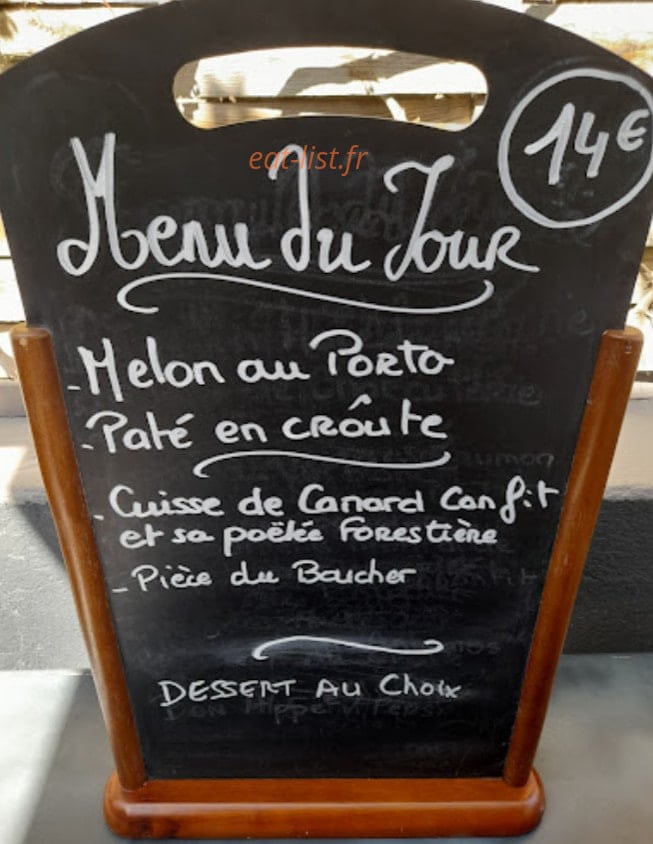 14€
eat-list.fr
Menu Du Jour
- Melon au Porto
- Paté en croûte
- Cuisse de Canard Confit
et sa poëlée Forestière
- Pièce du Boucher
DESSERT AU Choix